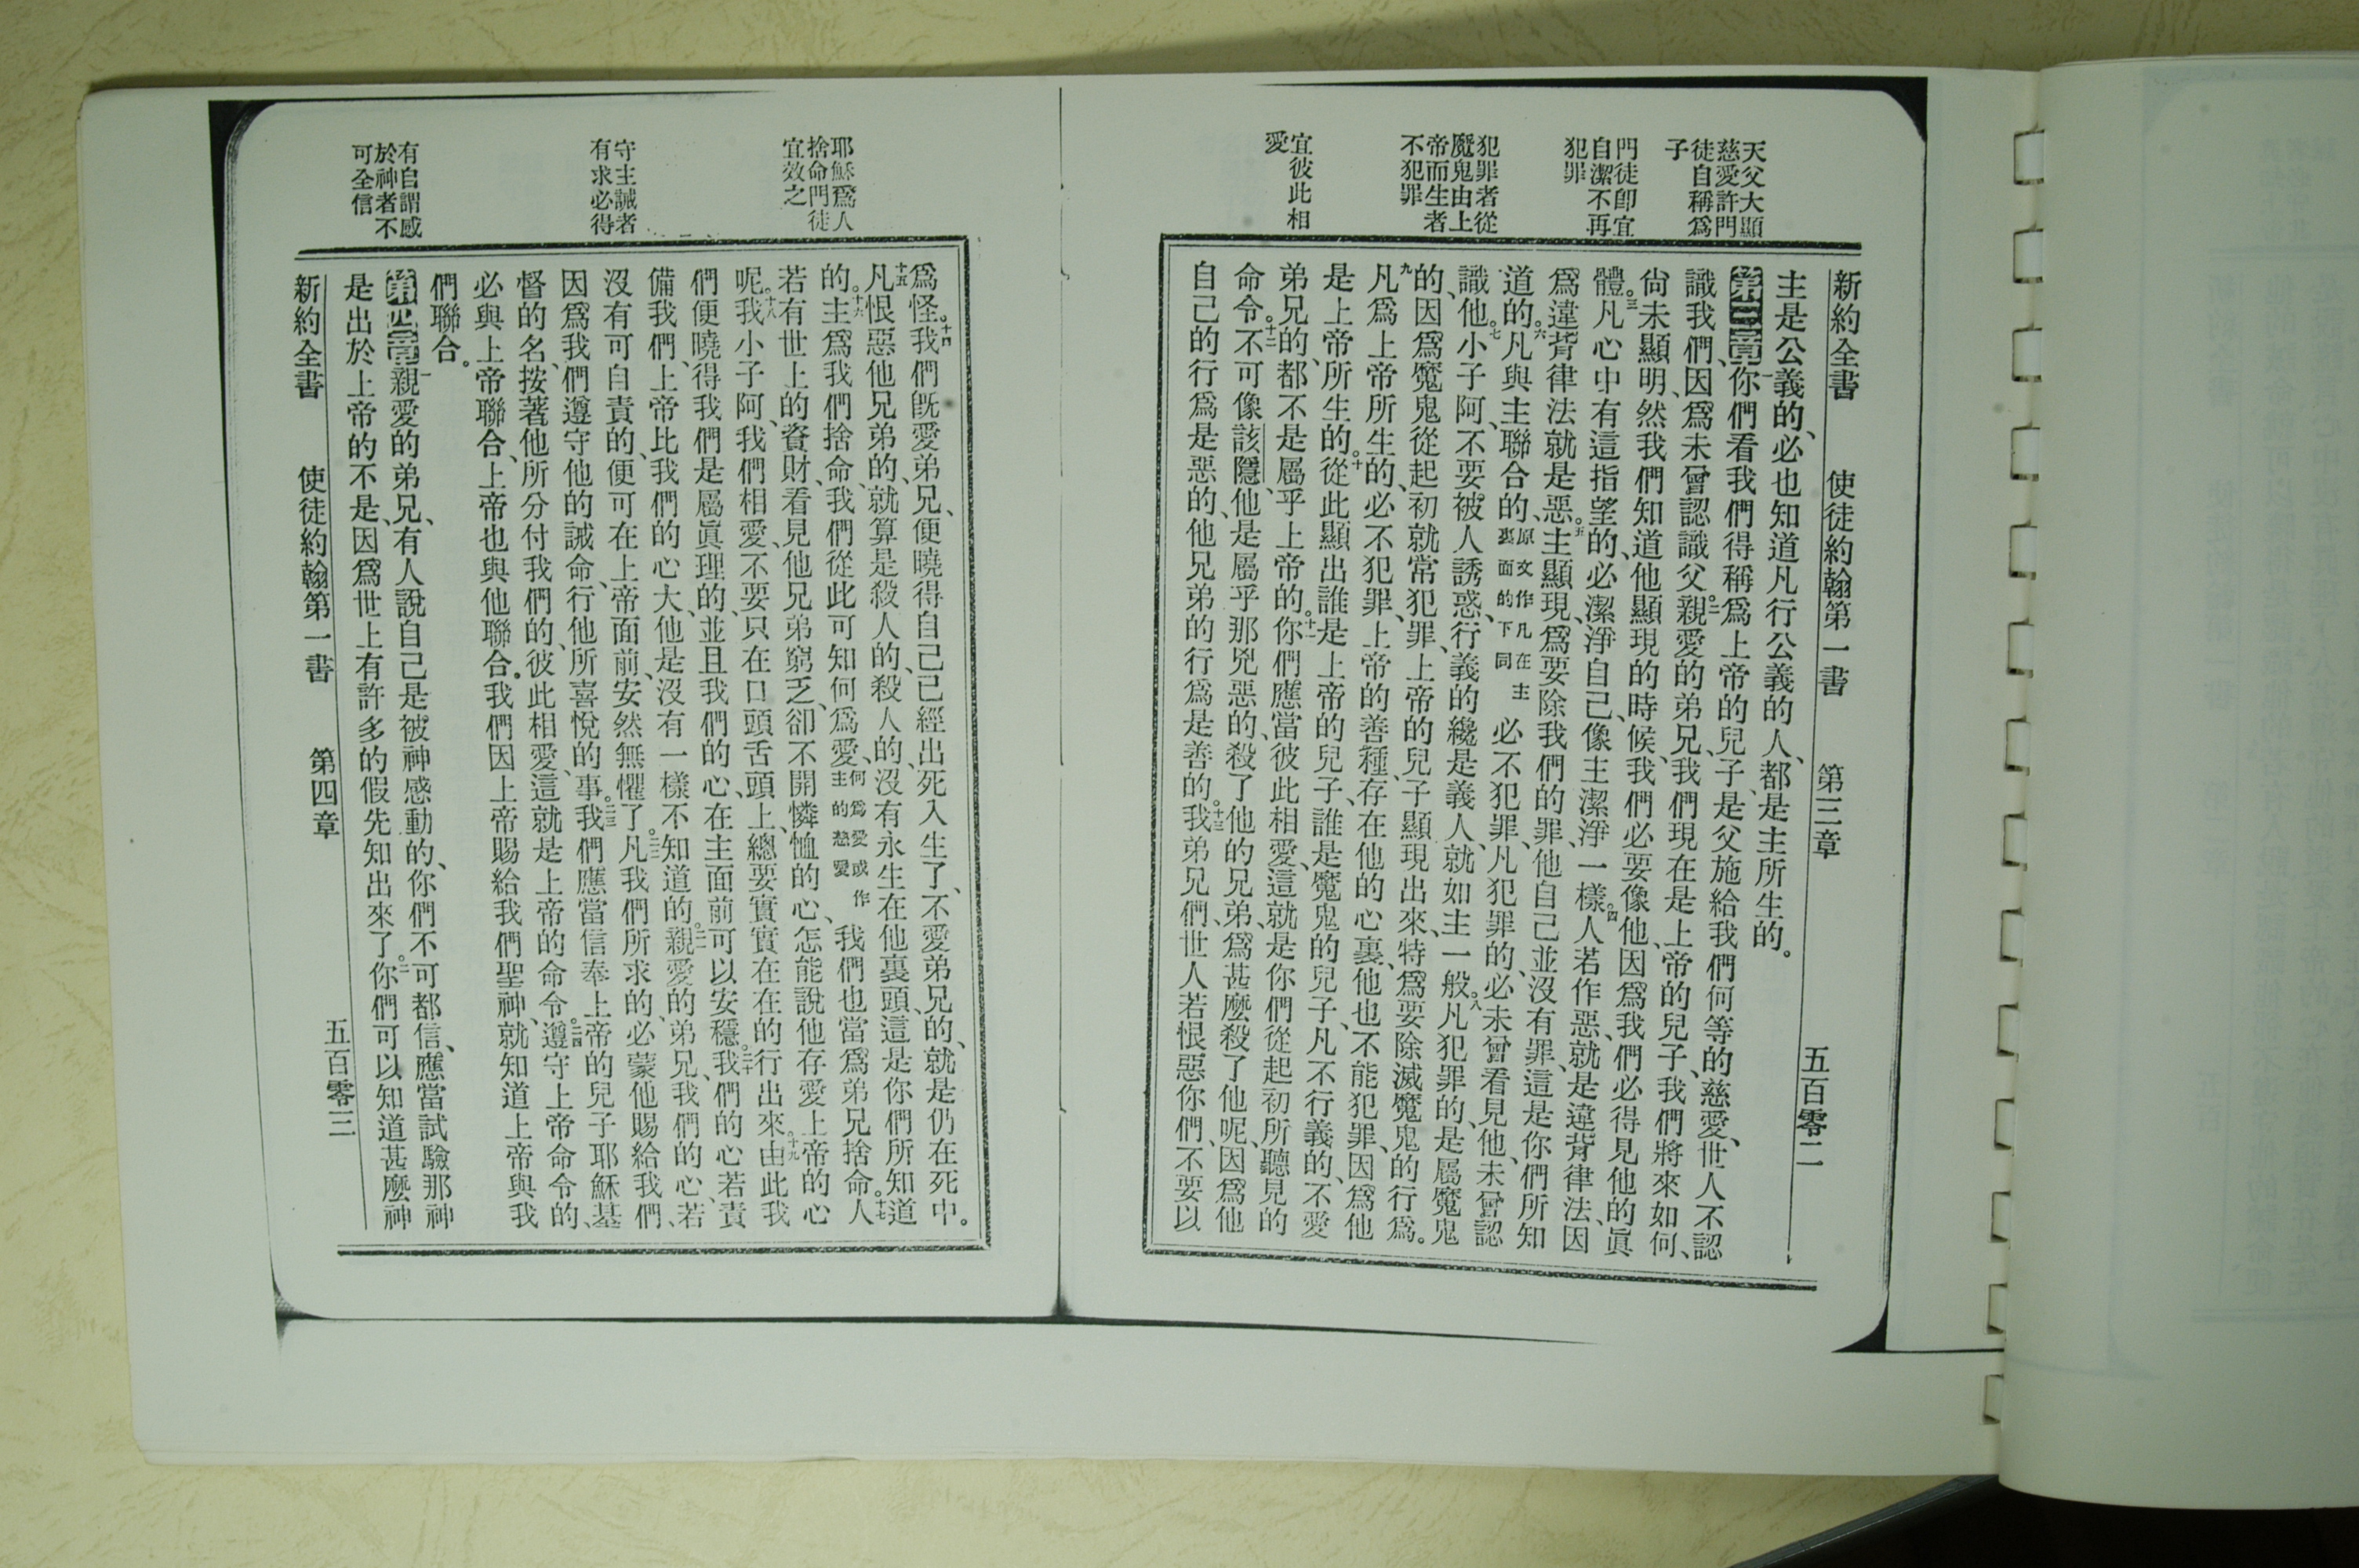 天父大顯
慈愛許門
徒自稱爲
子
門徒卽宜
自潔不再
犯罪
犯罪者從
魔鬼由上
帝而生者
不犯罪
宜彼此相
愛
新約全書 使徒約翰第一書 第三章 五百零二
主是公義的、必也知道凡行公義的人、都是主所生的。
第三章一你們看我們得稱爲上帝的兒子、是父施給我們何等的慈愛、世人不認
識我們、因爲未曾認識父。二親愛的弟兄、我們現在是上帝的兒子、我們將來如何、
尙未顯明、然我們知道他顯現的時候、我們必要像他、因爲我們必得見他的眞
體。三凡心中有這指望的、必潔淨自己、像主潔淨一樣。四人若作惡、就是違背律法、因
爲違背律法就是惡。五主顯現、爲要除我們的罪、他自己並沒有罪、這是你們所知
道的。六凡與主聯合的、原文作凡在主裏面的下同必不犯罪、凡犯罪的、必未曾看見他、未曾認
識他。七小子阿、不要被人誘惑、行義的纔是義人、就如主一般。八凡犯罪的、是屬魔鬼
的、因爲魔鬼從起初就常犯罪、上帝的兒子顯現出來、特爲要除滅魔鬼的行爲。
九凡爲上帝所生的、必不犯罪、上帝的善種、存在他的心裏、他也不能犯罪、因爲他
是上帝所生的。十從此顯出誰是上帝的兒子、誰是魔鬼的兒子、凡不行義的、不愛
弟兄的、都不是屬乎上帝的。十一你們應當彼此相愛、這就是你們從起初所聽見的
命令。十二不可像該隱、他是屬乎那兇惡的、殺了他的兄弟、爲甚麼殺了他呢、因爲他
自己的行爲是惡的、他兄弟的行爲是善的。十三我弟兄們、世人若恨惡你們、不要以
耶穌爲人
捨命門徒
宜效之
守主誡者
有求必得
有自謂感
於神者不
可全信
爲怪。十四我們旣愛弟兄、便曉得自己已經出死入生了、不愛弟兄的、就是仍在死中。
十五凡恨惡他兄弟的、就算是殺人的、殺人的、沒有永生在他裏頭、這是你們所知道
的。十六主爲我們捨命、我們從此可知何爲愛、何爲愛或作主的慈愛我們也當爲弟兄捨命。十七人
若有世上的資財、看見他兄弟窮乏、卻不開憐恤的心、怎能說他存愛上帝的心
呢。十八我小子阿、我們相愛、不要只在口頭舌頭上、總要實實在在的行出來。十九由此我
們便曉得我們是屬眞理的、並且我們的心、在主面前可以安穩。二十我們的心若責
備我們、上帝比我們的心大、他是沒有一樣不知道的。二一親愛的弟兄、我們的心、若
沒有可自責的、便可在上帝面前、安然無懼了。二二凡我們所求的、必蒙他賜給我們、
因爲我們遵守他的誡命、行他所喜悅的事。二三我們應當信奉上帝的兒子耶穌基
督的名、按著他所分付我們的、彼此相愛、這就是上帝的命令。二四遵守上帝命令的、
必與上帝聯合、上帝也與他聯合。我們因上帝賜給我們聖神、就知道上帝與我
們聯合。
第四章一親愛的弟兄、有人說自己是被神感動的、你們不可都信、應當試驗那神
是出於上帝的不是、因爲世上有許多的假先知出來了。二你們可以知道甚麼神
新約全書 使徒約翰第一書 第四章 五百零三